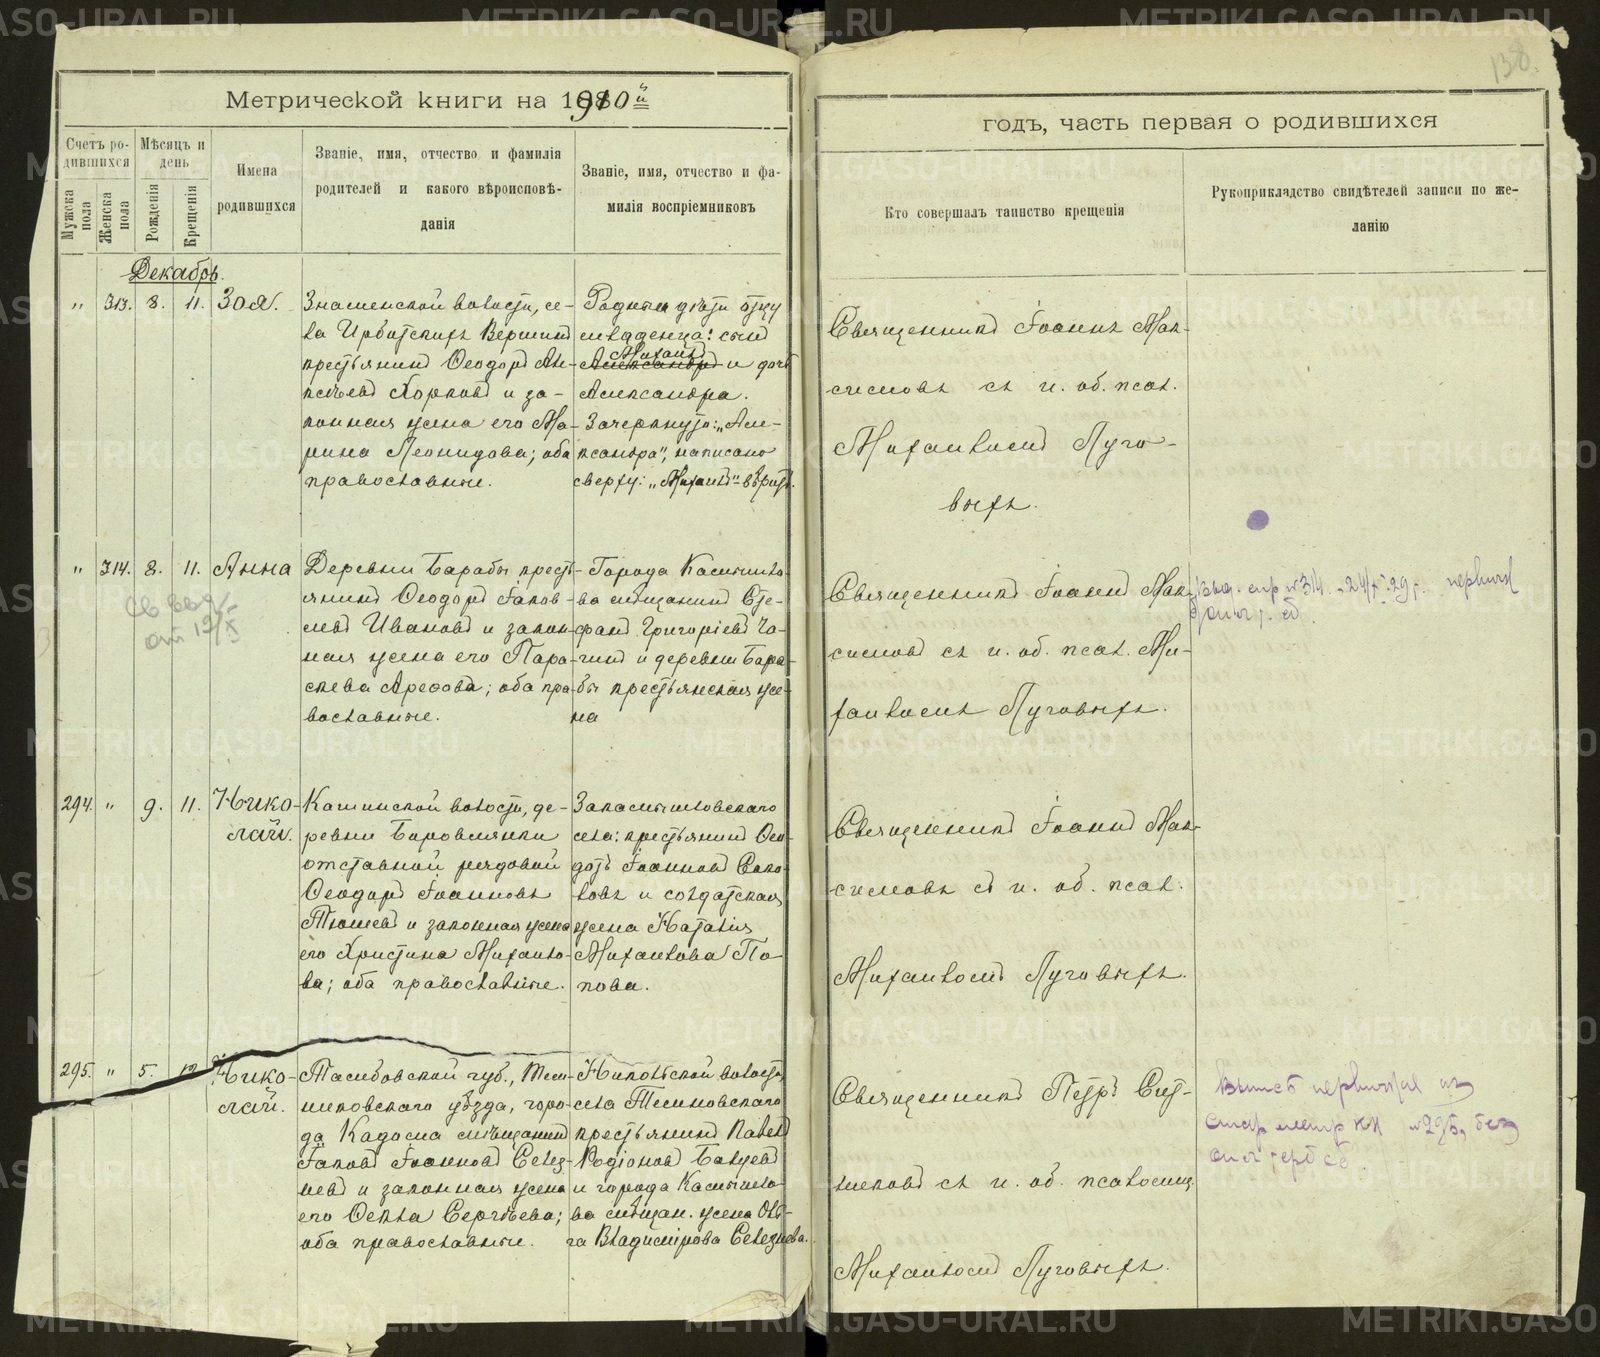 Метрической книги на 1910й
годъ, часть первая о родившихся
138
Счетъ ро-
дившихся
Мѣсяцъ и
день
Мужска
пола
Женска
пола
Рожденія
Крещенія
Имена
родившихся
Званіе, имя, отчество и фамилія
родителей и какого вѣроисповѣ-
данія
Званіе, имя, отчество и фа-
милія воспріемниковъ
Кто совершалъ таинство крещенія
Рукоприкладство свидѣтелей записи по же-
ланію
Декабрь.
" 313. 8. 11. Зоя.
Знаменской волости, се-
ла Ирбитскихъ Вершинъ
крестьянинъ Ѳеодоръ Але-
ксѣевъ Хорковъ и за-
конная жена его Ма-
рина Леонидова; оба
православные.
младенца: сынъ
Михаилъ
Александръ и дочь
Александра.
Зачеркнуто: „Але-
ксандра", написано
сверху: „Михаилъ"
Священникъ Іоаннъ Мак-
симовъ съ и. об. псал.
Михаиломъ Луго-
выхъ.
" 314. 8. 11. Анна
Деревни Барабы кресть-
янинъ Ѳеодоръ Іаков-
левъ Ивановъ и закон-
ная жена его Пара-
скева Арефова; оба пра-
вославные.
Города Камышло-
ва мѣщанинъ Сте-
фанъ Григоріевъ
и деревни Бара-
бы крестьянская же-
на
Священникъ Іоаннъ Мак-
симовъ съ и. об. псал. Ми-
хаиломъ Луговыхъ.
294. " 9. 11. Нико-
лай.
Кашинской волости, де-
ревни Боровлянки
отставной рядовой
Ѳеодоръ Іоанновъ
Тюшевъ и законная жена
его Христина Михайло-
ва; оба православные.
Закамышловскаго
села: крестьянинъ Ѳео-
дотъ Іоанновъ Соко-
ловъ и солдатская
жена Наталія
Михаилова По-
пова.
Священникъ Іоаннъ Мак-
симовъ съ и. об. псал.
Михаиломъ Луговыхъ.
295. " 5. 12. Нико-
лай.
Тамбовской губ., Тем-
никовскаго уѣзда, горо-
да Кадома мѣщанинъ
Іаковъ Іоанновъ Селез-
невъ и законная жена
его Ѳекла Сергѣева;
оба православные.
Никольской волости,
села Темновскаго
крестьянинъ Павелъ
Родіоновъ
и города Камышло-
ва мѣщан. жена Оль-
га Владимірова Селезнева.
Священникъ Петръ Сит-
никовъ съ и. об. псаломщ.
Михаиломъ Луговыхъ.